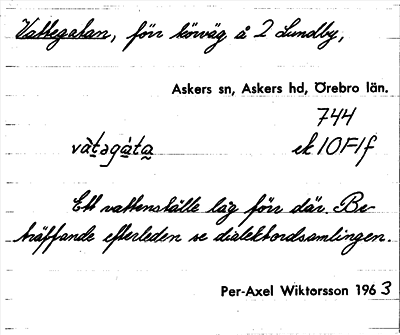 Vattegatan, förr körväg å 2 Lundby,
Askers sn, Askers hd, Örebro län.
744
vàtəgàta ek 10F1f
Ett vattenställe låg förr där. Be-
träffande efterleden se dialektordsamlingen.
Per-Axel Wiktorsson 1963